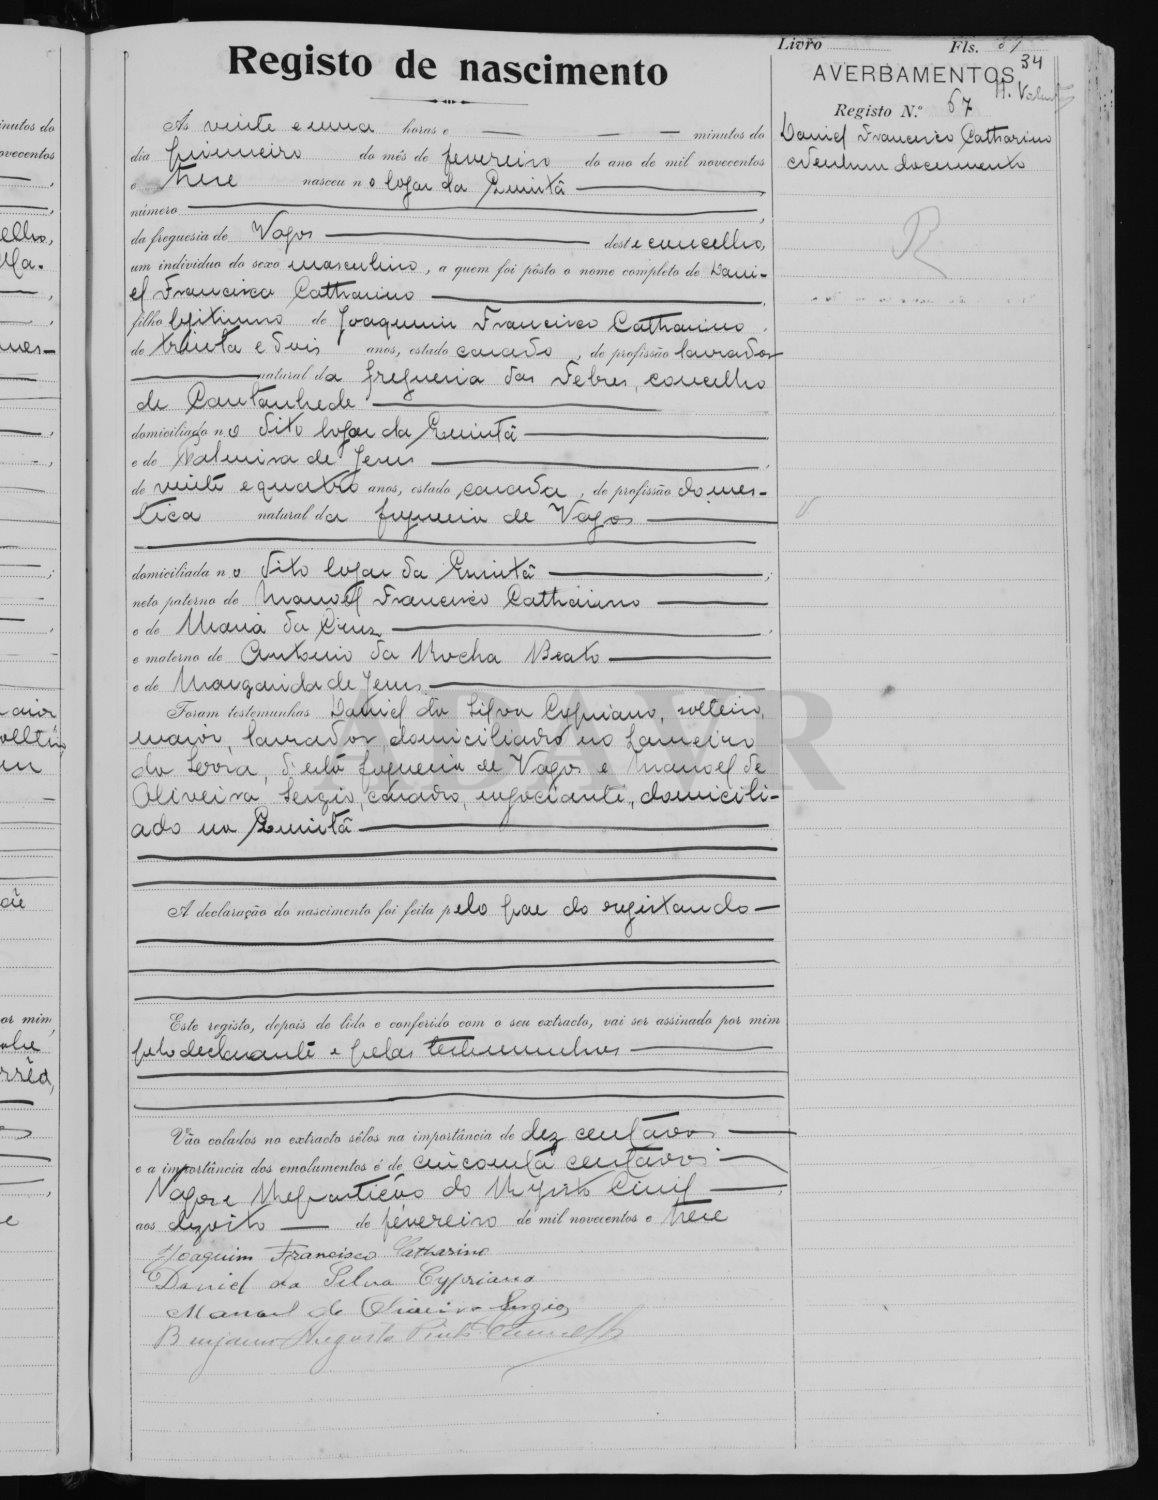 Livro Fls. 34
Registo de nascimento
AVERBAMENTOS
Registo N.º 67
Daniel Francisco Catharino
Nenhum documento
Ás vinte e uma horas e — — — minutos do
dia primeiro do mês de fevereiro do ano de mil novecentos
e treze nasceu no logar da Quintã
número
da freguesia de Vagos deste concelho,
um individuo do sexo masculino, a quem foi pôsto o nome completo de Dani-
el Francisco Catharino
filho legitimo de Joaquim Francisco Catharino
de trinta e dois anos, estado casado, de profissão lavrador
natural da freguesia das Febres, concelho
de Cantanhede
domiciliado no dito logar da Quintã
e de Palmira de Jesus
de vinte e quatro anos, estado casada, de profissão domes-
tica natural da freguesia de Vagos
domiciliada no dito logar da Quintã
neto paterno de Manoel Francisco Catharino
e de Maria da Cruz
e materno de Antonio da Rocha Beato
e de Margarida de Jesus
Foram testemunhas Daniel da Silva Cypriano, solteiro,
maior, lavrador, domiciliado no Lameiro
da Serra, desta freguesia de Vagos e Manoel de
Oliveira Sergio, casado, negociante, domicili-
ado na Quintã
ADAVR
A declaração do nascimento foi feita pelo pae do registando
Este registo, depois de lido e conferido com o seu extracto, vai ser assinado por mim
pelo declarante e pelas testemunhas
Vão colados no extracto sêlos na importância de dez centavos
e a importância dos emolumentos é de cincoenta centavos.
Vagos e Repartição do Registo Civil
aos dezoito de fevereiro de mil novecentos e treze
Joaquim Francisco Catharino
Daniel da Silva Cypriano
Manoel de Oliveira Sergio
Benjamin Augusto Pinto